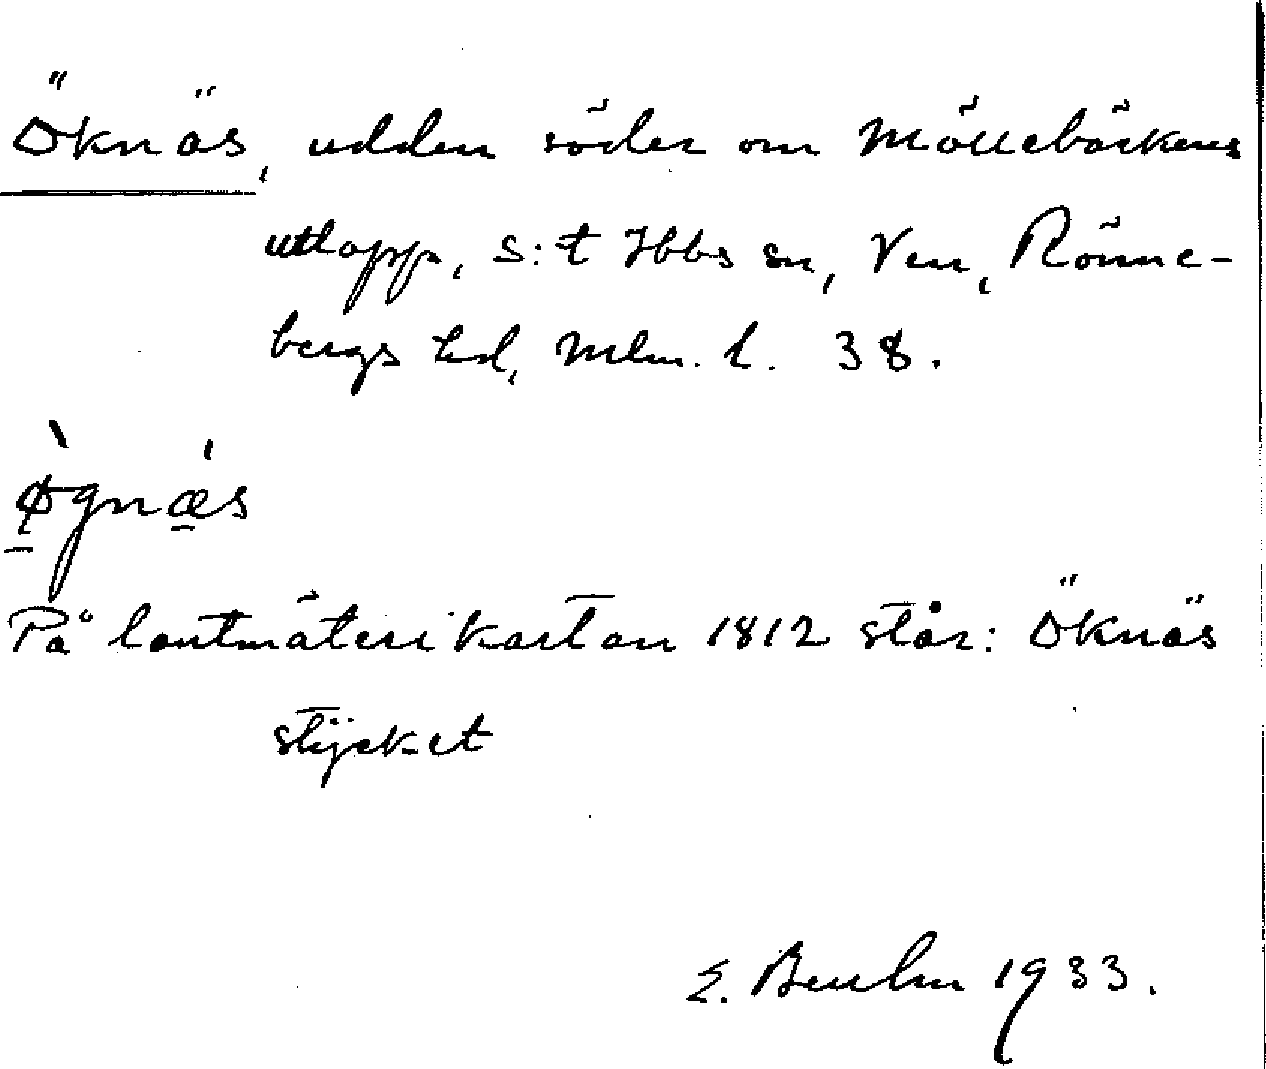 Öknäs, udden söder om Möllebäckens
utlopp, S:t Ibbs sn, Ven, Rönne-
bergs hd, Mlm. l. 38.
Ø̀gnǽ̠s
På lantmäterikartan 1812 står: Öknäs
stÿcket
E. 1933.